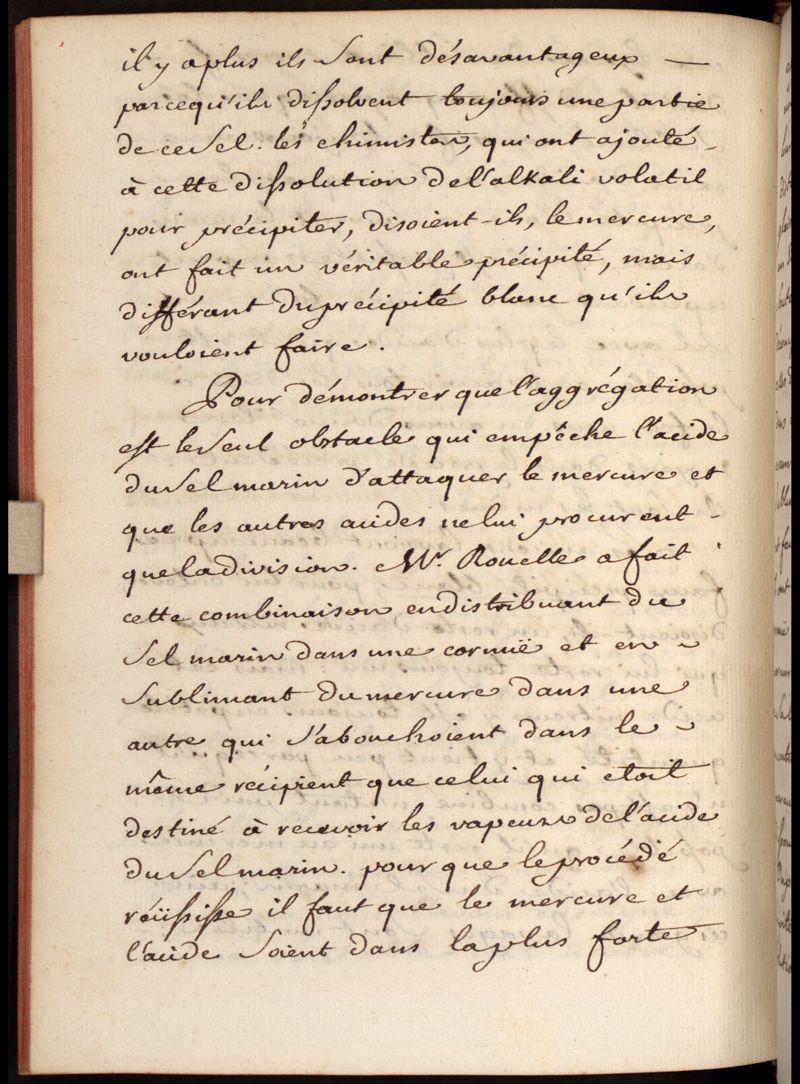 il y a plus ils sont désavantageux —
parcequ'ils dissolvent toujours une partie
de ce sel. les chimistes, qui ont ajouté
à cette dissolution de l'alkali volatil
pour précipiter, disoient-ils, le mercure,
ont fait un véritable précipité, mais
différant du précipité blanc qu'ils
vouloient faire.
Pour démontrer que l'aggrégation
est le seul obstacle qui empêche l'acide
du sel marin d'attaquer le mercure et
que les autres acides ne lui procurent -
que la division. Mr. Rouelle a fait
cette combinaison en distribuant du
sel marin dans une cornuë et en
sublimant du mercure dans une
autre qui s'abouchoient dans le
même récipient que celui qui etoit
destiné à recevoir les vapeurs de l'acide
du sel marin. pour que le procédé
réüississe il faut que le mercure et
l'acide soient dans la plus forte